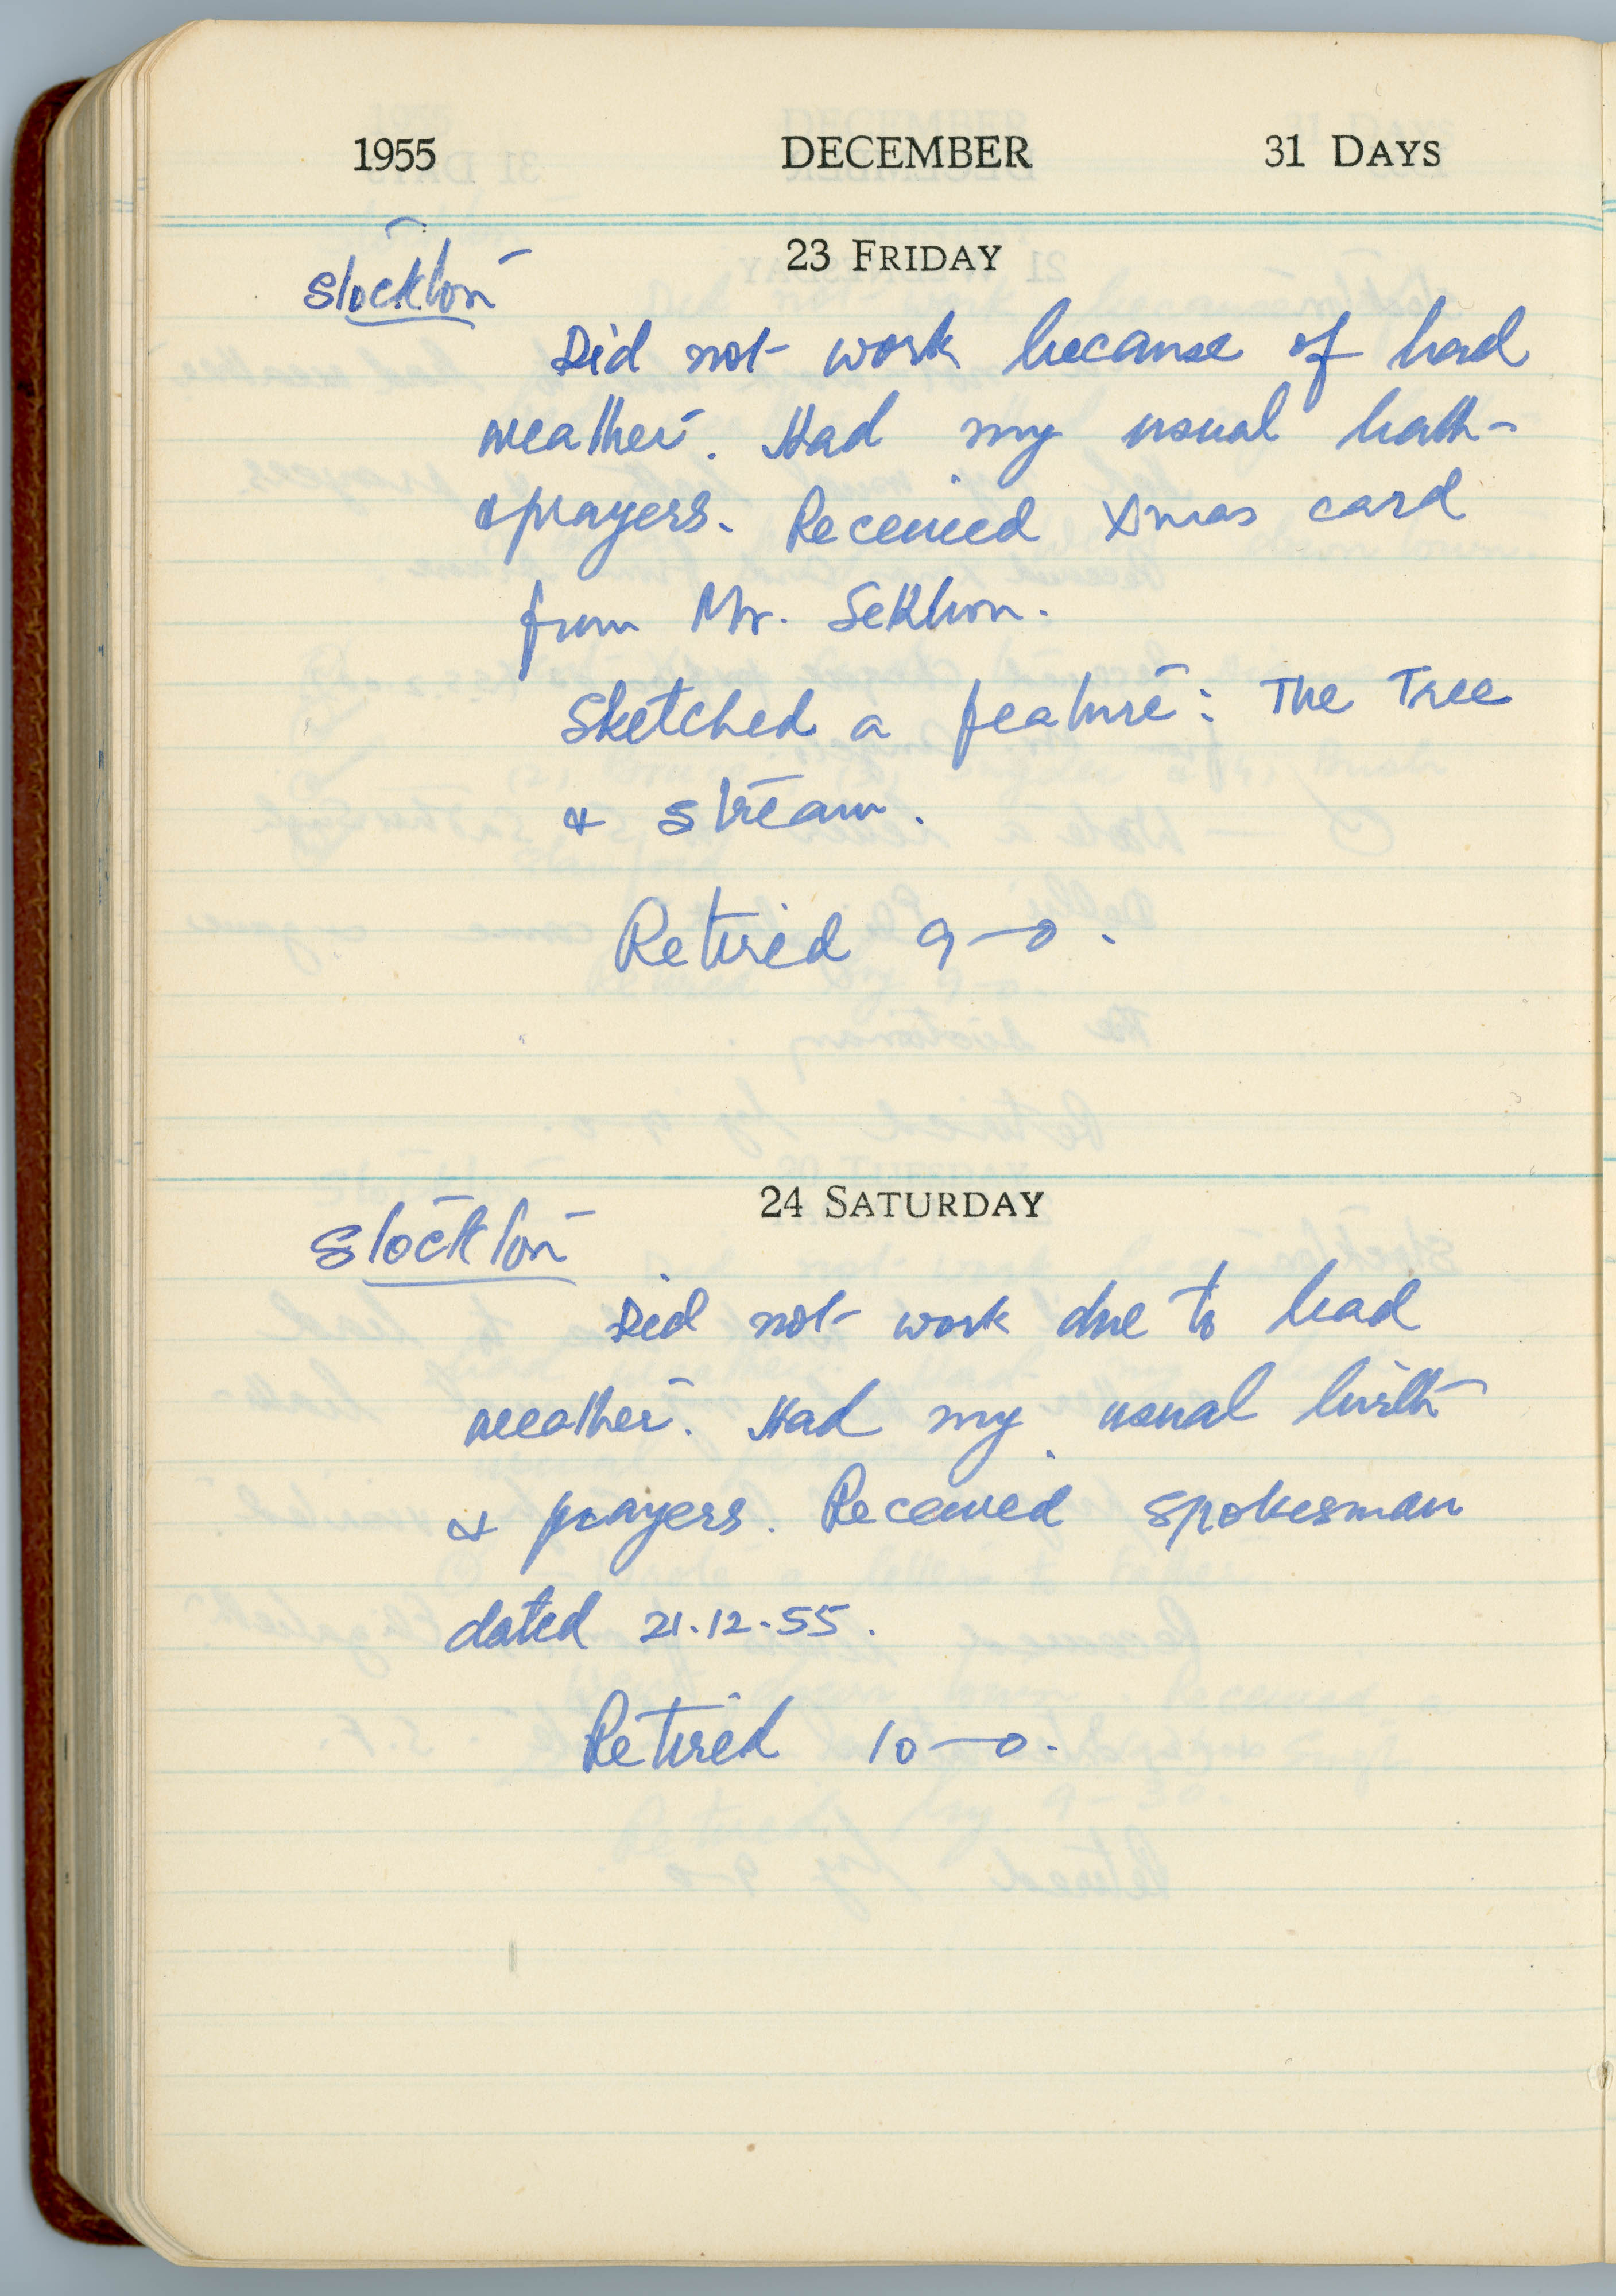 1955 DECEMBER 31 DAYS
23 FRIDAY
Stockton
Did not work because of bad
weather. Had my usual bath
& prayers. Received Xmas card
from Mr. Sekhon.
Sketched a feature: The Tree
& stream.
Retired 9-0.
24 SATURDAY
Stockton
Did not work due to bad
weather. Had my usual bath
& prayers. Received Spokesman
dated 21.12.55.
Retired 10-0.